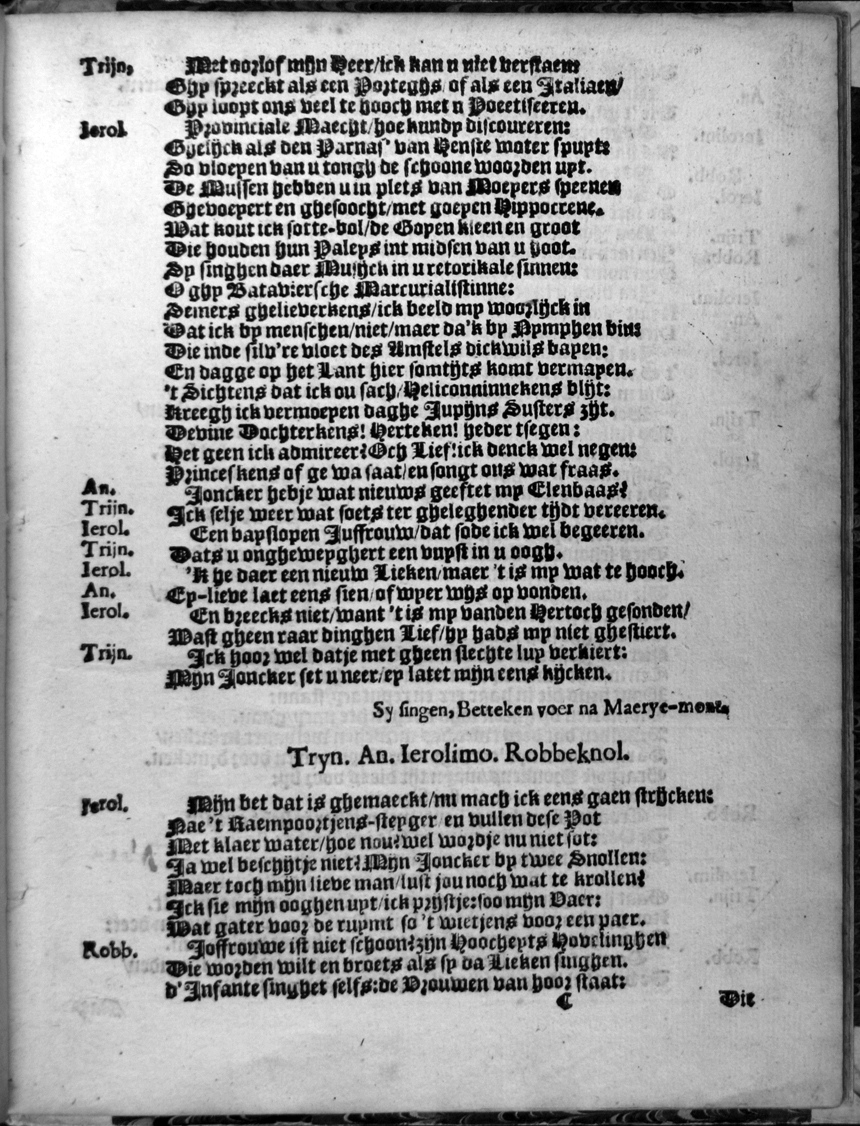 Trijn, Met oorlof mijn Heer/ick kan u niet verstaen:
Ghy spreeckt als een Porteghs/of als een Italiaen/
Ghy loopt ons veel te hooch met u Poeetiseeren.
Ierol. Provinciale Maecht/hoe kundy discoureren:
Gyelijck als den Parnas' van Henste woter spuyt:
So vloeyen van u tongh de schoone woorden uyt.
De Mussen hebben u in plets van Moeyers speenen
Ghevoeyert en ghesoocht/met goeyen Hippocrene.
Wat kout ick sotte-bol/de Goyen kleen en groot
Die houden hun Paleys int midsen van u hoot.
Sy singhen daer Musijck in u retorikale sinnen:
O ghy Bataviersche Marcurialistinne:
Semers ghelieverkens/ick beeld my woorlijck in
Dat ick by menschen/niet/maer da'k by Nymphen bin:
Die inde silv're vloet des Amstels dickwils bayen:
En dagge op het Lant hier somtijts komt vermayen.
't Sichtens dat ick ou sach/Heliconninnekens blijt:
Kreegh ick vermoeyen daghe Jupijns Susters zijt.
Devine Dochterkens! Herteken! heder tsegen:
Het geen ick admireer? Och Lief! ick denck wel negen:
Princeskens of ge wa saat/en songt ons wat fraas.
An. Joncker hebje wat nieuws geeftet my Elenbaas?
Trijn. Ick selje weer wat soets ter gheleghender tijdt vereeren.
Ierol. Een bayslopen Juffrouw/dat sode ick wel begeeren.
Trijn. Dats u onghewepghert een vuyst in u oogh.
Ierol. 'K he daer een nieuw Lieken/maer 't is my wat te hooch.
An. Ey-lieve laet eens sien/of wyer wijs op vonden.
Ierol. En breecks niet/want 't is my vanden Hertoch gesonden/
Wast gheen raar dinghen Lief/hy hads my niet ghestiert.
Trijn. Ick hoor wel datje met gheen slechte luy verkiert:
Mijn Joncker set u neer/ey latet mijn eens kijcken.
Sy singen, Betteken voer na Maerye-mont,
Tryn. An. Ierolimo. Robbeknol.
Jerol. Mijn bet dat is ghemaeckt/nu mach ick eens gaen strijcken:
Nae 't Kaempoortjens-steyger en vullen dese Pot
Met klaer water/hoe nou? wel wordje nu niet sot:
Ja wel beschijtje niet? Mijn Joncker by twee Snollen:
Maer toch mijn lieve man/lust jou noch wat te krollen?
Ick sie mijn ooghen uyt/ick prijstje: soo mijn Vaer:
Wat gater voor de ruymt so 't wietjens voor een paer.
Robb. Joffrouwe ist niet schoon? zijn Hoocheyts Hovelinghen
Die worden wilt en broets als sy da Lieken singhen.
d'Infante singhet selfs: de Vrouwen van hoor staat:
C Dit